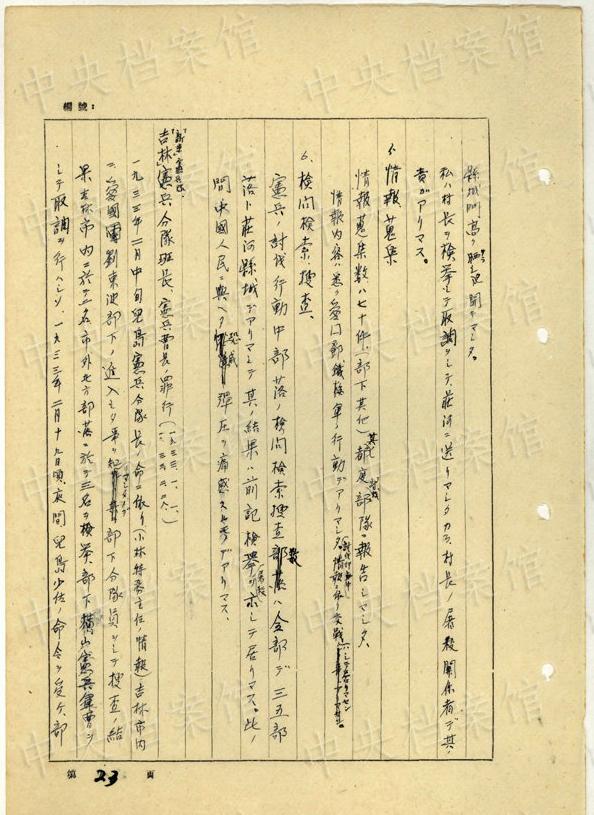 編號：
縣城門高ク晒ヒ
私ハ村長ヲ検挙シテ取調ヲシテ、莊河ニ送リマシタカラ、村長ノ屠殺関係者デ其ノ
責ガアリマス。
5、情報蒐集
情報蒐集数ハ七十件、（部下其他）其ノ都度部隊ニ報告シマシタ。
情報内容ハ悉ク鄧鐵梅軍ノ行動デアリマシタ
6、検問検索、捜査、
憲兵ノ討伐行動中部落ノ検問検索捜査部落数ハ全部デ三五部
落ト莊河縣城デアリマシテ其ノ結果ハ前記検挙ヲ示シテ居リマス。此ノ
間中國人民ニ與ヘタ恐喊弾圧ヲ痛感スル者デアリマス、
新京憲兵隊
吉林憲兵分隊班長、憲兵曹長ノ罪行（一九三三、一、
一九三三年二月中旬児島憲兵分隊長ノ命ニ依リ（小林特務主任ノ情報）吉林市内
ニ愛國軍劉東波部下ノ進入シタ事ヲ部下分隊員ヲシテ捜査ノ結
果吉林市内ニ於テ三名市外北方部落ニ於テ三名ヲ検挙、部下横山憲兵軍曹ヲ
シテ取調ヲ行ハシメ、一九三三年二月十九日頃、夜間児島少佐ノ命令ヲ受ケ、部
第 23 頁
中央档案馆